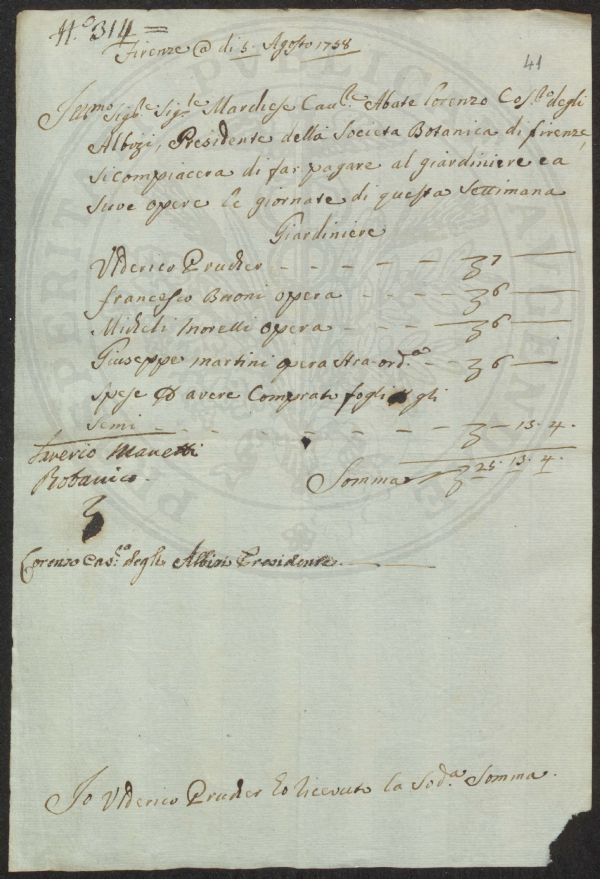 N.º 314
41
Firenze @ di 5. Agosto 1758
Ill.mo Sig.re Sig.re Marchese Cau.re Abate Lorenzo Cos.ne degli
Albizi, Presidente della Societa Botanica di firenze,
si compiacera di far pagare al giardiniere e a
sue opere le giornate di questa Settimana
Giardiniere
Vlderico Pruckер - - - - - - 7
francesco Bruoni opera - - - - 6
Micheli Morelli opera - - - - 6
Giuseppe Martini opera stra-ord.ª - - 6
spese @ avere Comprati fogli @ gli
Semi - - - - - - - - 13. 4.
Saverio Manetti
Botanico.
Somma 25. 13. 4.
Lorenzo Cas.ne degli Albizi Presidente.
Io Vlderico Prucker ho riceuuto la Sod.ª Somma.
PUBLIC